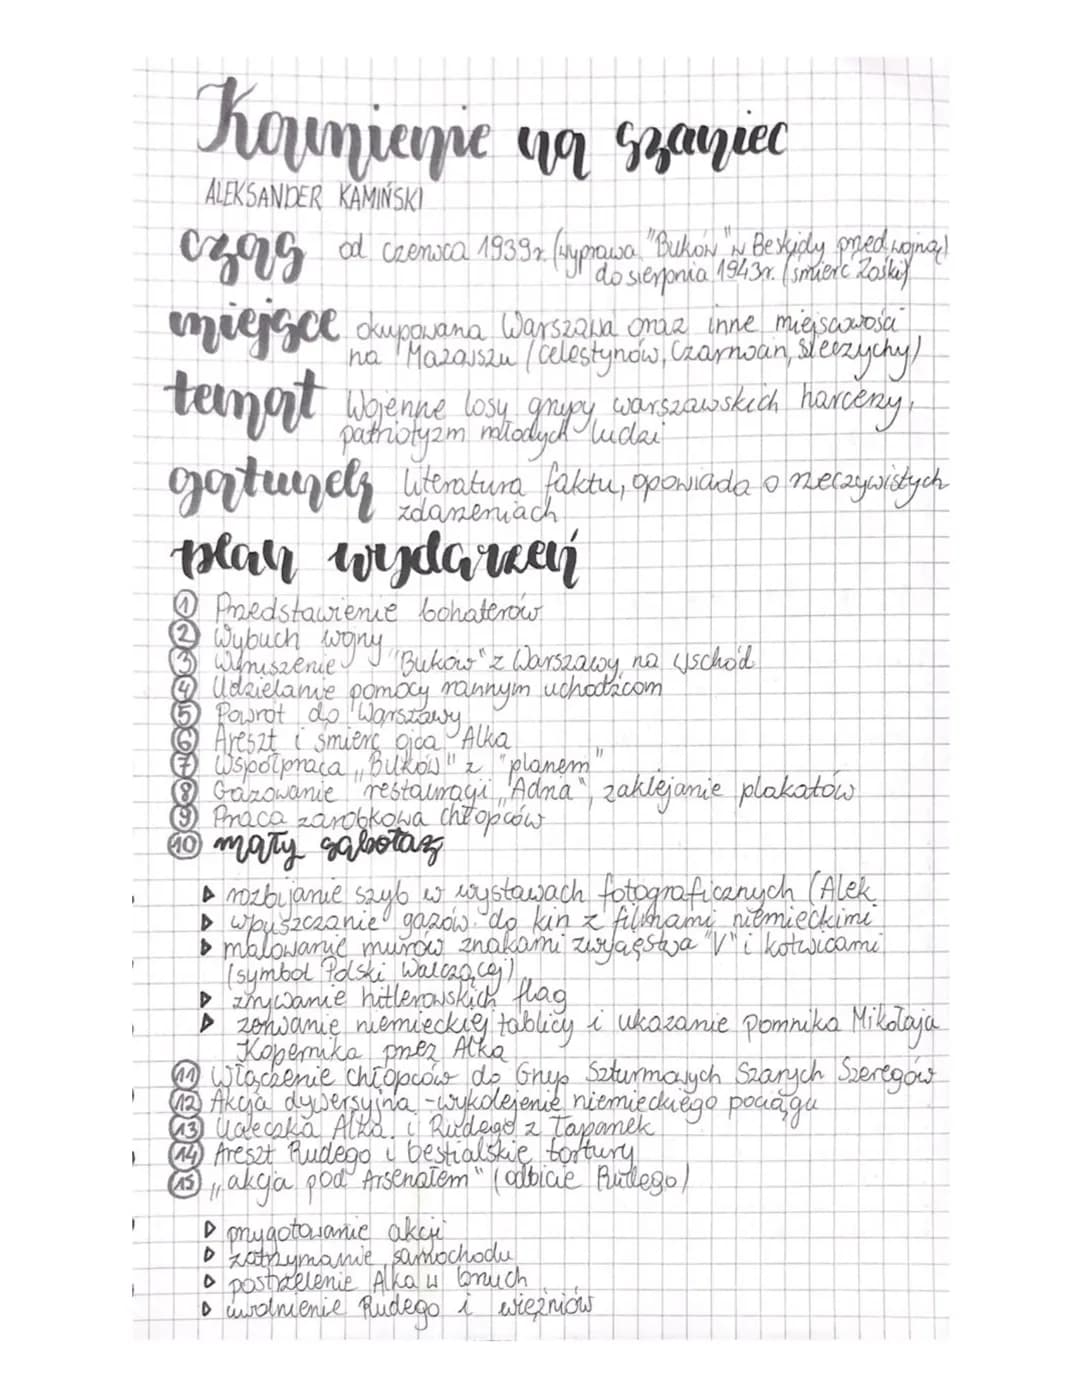 Kamienie na szaniec
ALEKSANDER KAMIŃSKI
czas od czerwca 1939r. (wyprawa "Buków" w Beskidy przed wojną)
do sierpnia 1943r. (śmierć Zośki)
miejsce okupowana Warszawa oraz inne miejscowości
na Mazowszu (Celestynów, Czarnocin, Sieczychy)
temat Wojenne losy grupy warszawskich harcerzy,
patriotyzm młodych ludzi
gatunek literatura faktu, opowiada o rzeczywistych
zdarzeniach
plan wydarzeń
1 Przedstawienie bohaterów
2 Wybuch wojny
3 Wyruszenie "Buków" z Warszawy na wschód
4 Udzielanie pomocy rannym uchodźcom
5 Powrót do Warszawy
6 Areszt i śmierć ojca Alka
7 Współpraca „Buków" z "planem"
8 Gazowanie restauracji „Adria", zaklejanie plakatów
9 Praca zarobkowa chłopców
10 mały sabotaż
▶ rozbijanie szyb w wystawach fotograficznych (Alek
▶ wpuszczanie gazów do kin z filmami niemieckimi
▶ malowanie murów znakami zwycięstwa "V" i kotwicami
(symbol Polski Walczącej)
▶ zrywanie hitlerowskich flag
▶ zerwanie niemieckiej tablicy i ukazanie pomnika Mikołaja
Kopernika przez Alka
11 Włączenie chłopców do Grup Szturmowych Szarych Szeregów
12 Akcja dywersyjna - wykolejenie niemieckiego pociągu
13 Ucieczka Alka i Rudego z łapanek
14 Areszt Rudego i bestialskie tortury
15 „akcja pod Arsenałem" (odbicie Rudego)
▷ przygotowanie akcji
▷ zatrzymanie samochodu
▷ postrzelenie Alka w brzuch
▷ uwolnienie Rudego i więźniów